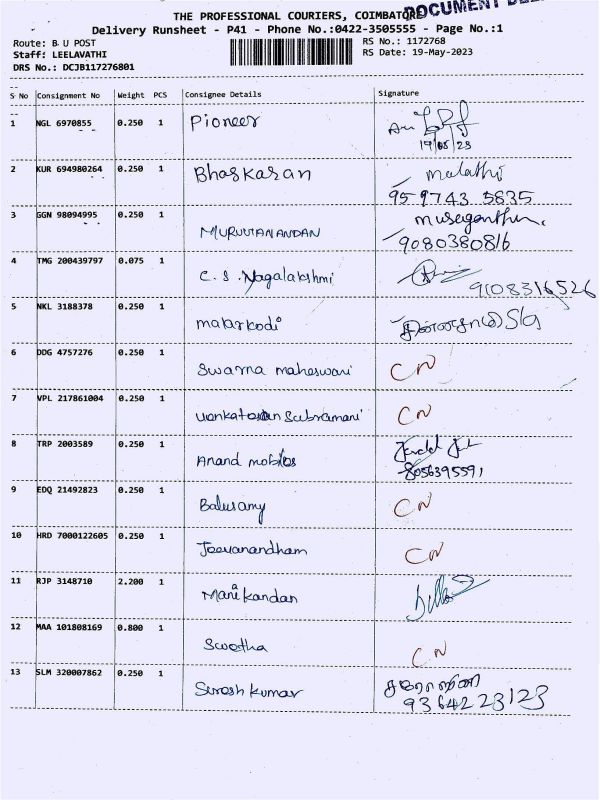 DOCUMENT
THE PROFESSIONAL COURIERS, COIMBATORE
Delivery Runsheet - P41 - Phone No.:0422-3505555 - Page No.:1
Route: B U POST RS No.: 1172768
Staff: LEELAVATHI RS Date: 19-May-2023
DRS No.: DCJB117276801
S No Consignment No Weight PCS Consignee Details Signature
1 NGL 6970855 0.250 1 Pioneer
19/05/23
2 KUR 694980264 0.250 1 Bhaskaran Malathi
959743 5835
3 GGN 98094995 0.250 1 MURUTANANDAN
9080380816
4 TMG 200439797 0.075 1 C. S. Nagalakshmi
9108316526
5 NKL 3188378 0.250 1 malarkodi
6 DDG 4757276 0.250 1 Swarna maheswari CN
7 VPL 217861004 0.250 1 Subramani CN
8 TRP 2003589 0.250 1 Anand mobiles
8056395591
9 EDQ 21492823 0.250 1 Balusamy CN
10 HRD 7000122605 0.250 1 Jeevanandham CN
11 RJP 3148710 2.200 1 Manikandan
12 MAA 101808169 0.800 1 Swetha CN
13 SLM 320007862 0.250 1 Suresh kumar சரோஜினி
9364223123